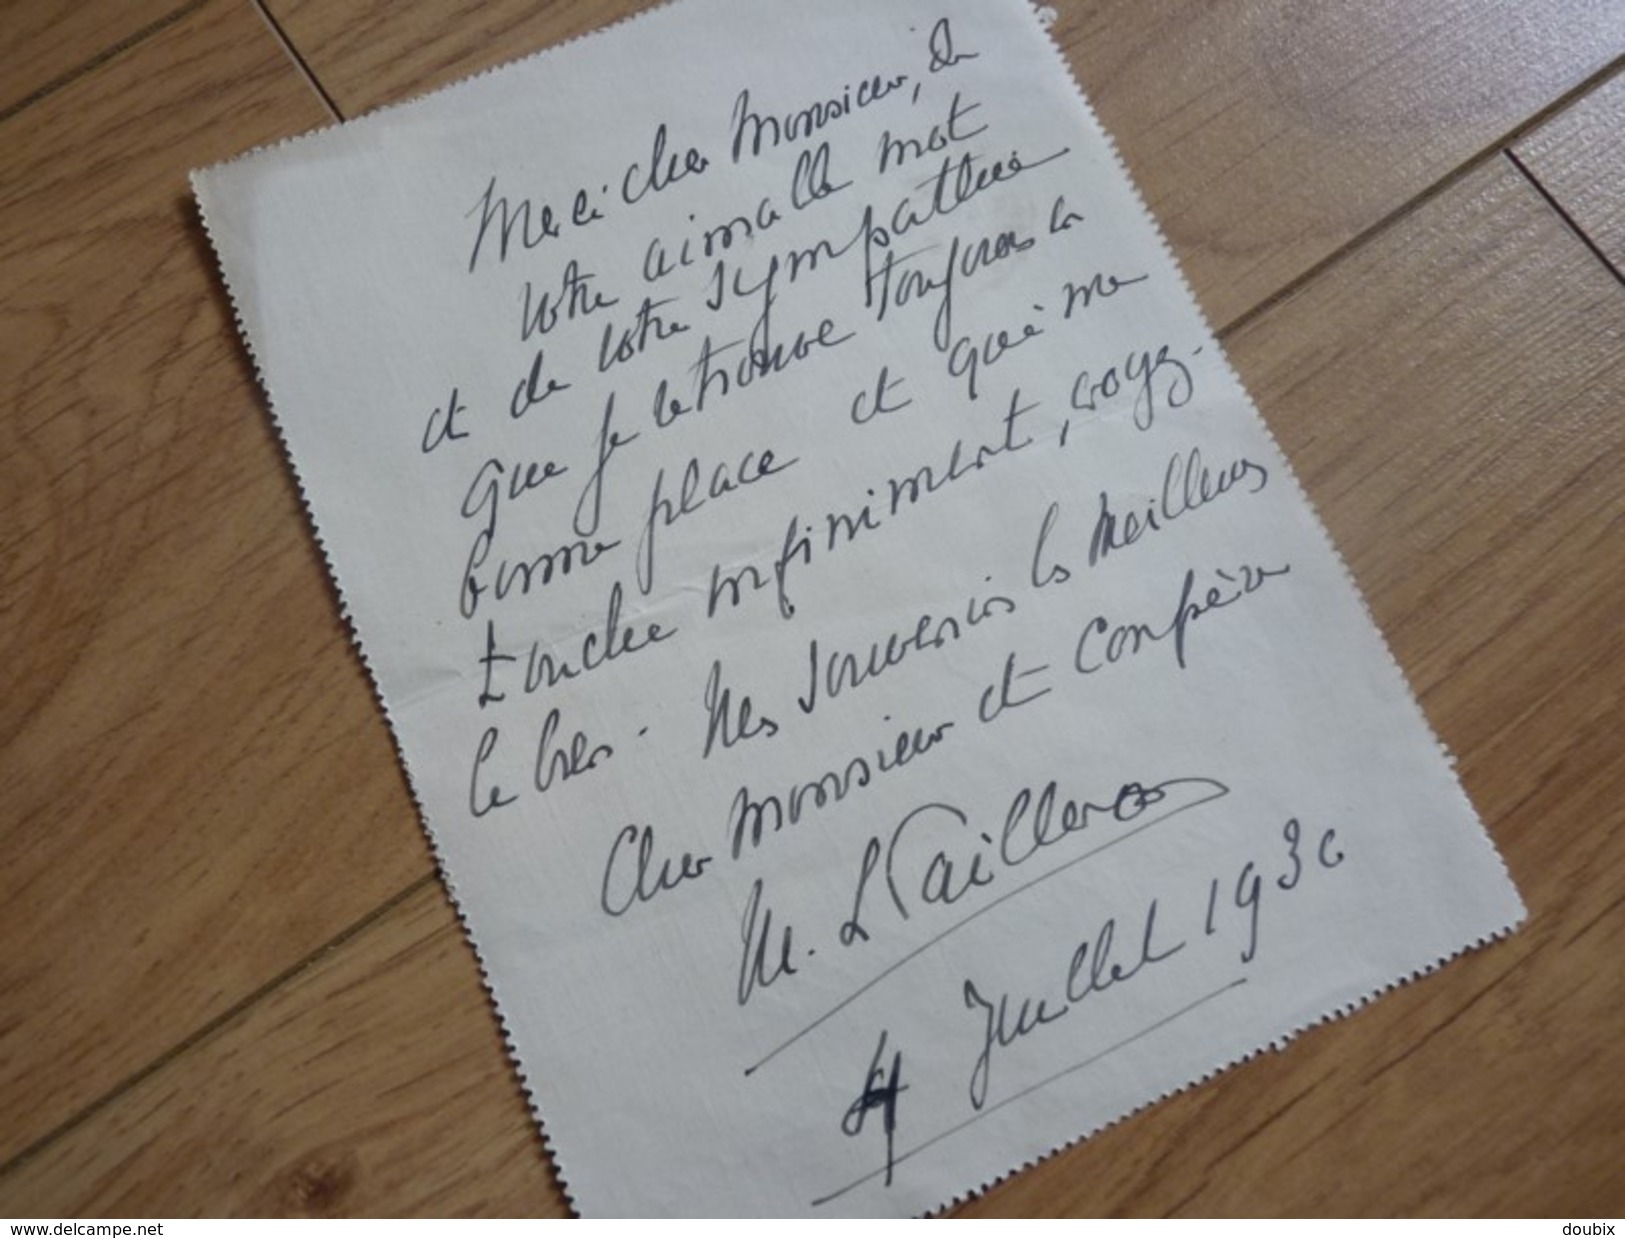 Merci cher Monsieur, de
votre aimable mot
et de votre sympathie
que je retrouve toujours en
bonne place et qui me
touche infiniment, croyez-
le bien. Mes souvenirs les meilleurs
Cher Monsieur et Confrère
M. L. Pailleron
4 Juillet 1930
www.delcampe.net
doubix